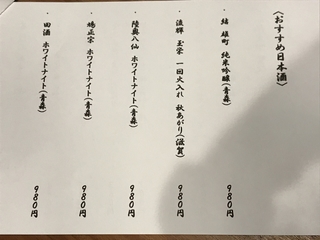 〈おすすめ日本酒〉
・結 雄町 純米吟醸(青森) 980円
・浪輝 玉栄 一回火入れ 秋あがり(滋賀) 980円
・陸奥八仙 ホワイトナイト(青森) 980円
・鳩正宗 ホワイトナイト(青森) 980円
・田酒 ホワイトナイト(青森) 980円